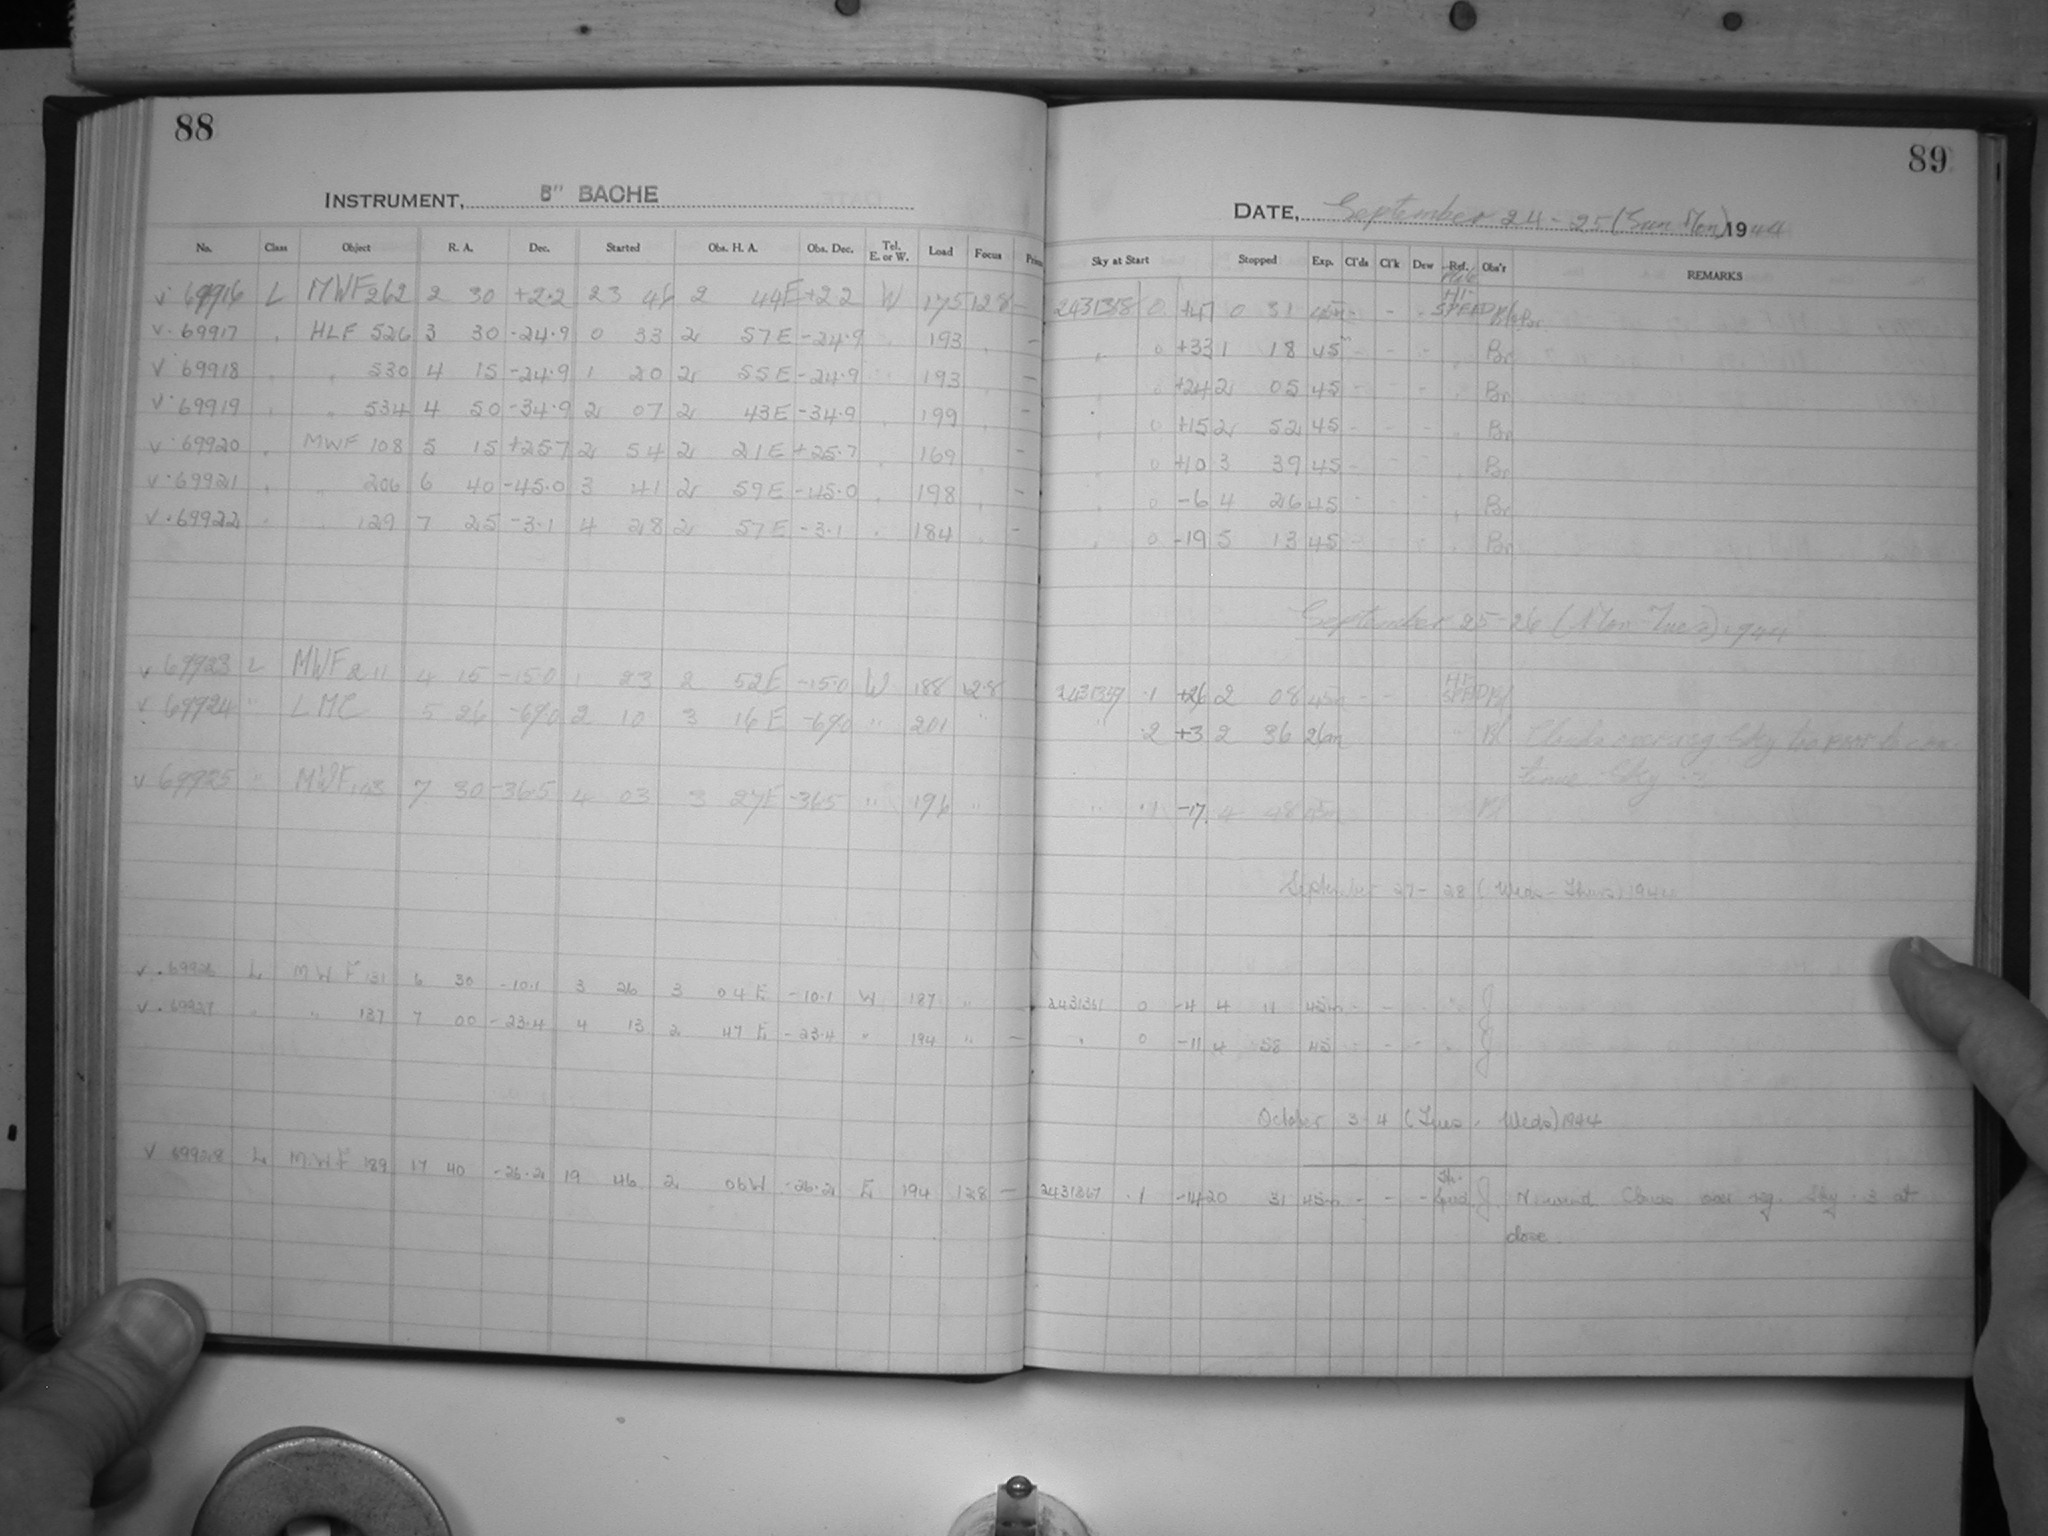 88
INSTRUMENT, 8" BACHE
No. Class Object R. A. Dec. Started Obs. H. A. Obs. Dec. Tel. E. or W. Load Focus
v 69916 L MWF 262 2 30 +2.2 23 46 2 44E +2.2 W 175 12.8 -
v. 69917 " HLF 526 3 30 -24.9 0 33 2 57E -24.9 " 193 " -
v. 69918 " " 530 4 15 -24.9 1 20 2 55E -24.9 " 193 " -
v. 69919 " " 534 4 50 -34.9 2 07 2 43E -34.9 " 199 " -
v. 69920 " MWF 108 5 15 +25.7 2 54 2 21E +25.7 " 169 " -
v. 69921 " " 206 6 40 -45.0 3 41 2 59E -45.0 " 198 " -
v. 69922 " " 129 7 25 -3.1 4 28 2 57E -3.1 " 184 " -
v 69923 L MWF 211 4 15 -15.0 1 23 2 52E -15.0 W 188 12.8
v 69924 " LMC 5 26 -69.0 2 10 3 16E -69.0 " 201 "
v 69925 " MWF 7 30 -36.5 4 03 3 27E -36.5 " 196 "
v. 69926 L MWF 131 6 30 -10.1 3 26 3 04E -10.1 W 187 " -
v. 69927 " " 137 7 00 -23.4 4 13 2 47E -23.4 " 194 " -
v 69928 L MWF 189 17 40 -26.2 19 46 2 06W -26.2 E 194 12.8 -
89
DATE, September 24-25 (Sun Mon) 1944
Sky at Start Stopped Exp. Cl'ds Cl'k Dew Ref. Obs'r REMARKS
2431358 0 +47 0 31 45m - - - HI-SPEED
" 0 +33 1 18 45 - - - " Br
" 0 +24 2 05 45 - - - " Br
" 0 +15 2 52 45 - - - " Br
" 0 +10 3 39 45 - - - " Br
" 0 -6 4 26 45 - - - " Br
" 0 -19 5 13 45 - - - " Br
September 25-26 (Mon-Tues) 1944
2431359 .1 +26 2 08 45m - - HI-SPEED Bl
" .2 +3 2 36 26m " Bl Clouds over reg. Sky too poor to con-
tinue Sky
" .1 -17 4 48 45m Bl
September 27-28 (Weds-Thurs) 1944
2431361 0 -4 4 11 45m - - - " J
" 0 -11 4 58 45 - - - " J
October 3-4 (Tues - Weds) 1944
2431367 .1 -14 20 31 45m - - - Hi-Speed J. N. wind Clouds over reg. Sky .3 at
close.